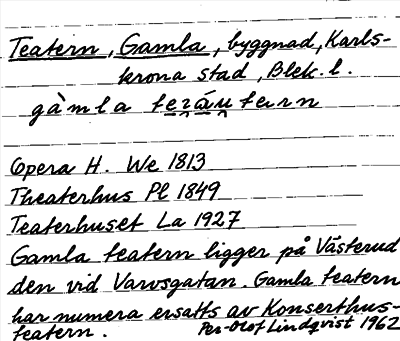 Teatern, Gamla, byggnad, Karls-
krona stad, Blek. l.
gàmla
Opera H. We 1813
Theaterhus Pl 1849
Teaterhuset La 1927
Gamla teatern ligger på Västerud
den vid Varvsgatan. Gamla teatern
har numera ersatts av Konserthus-
teatern.
Per-Olof Lindqvist 1962